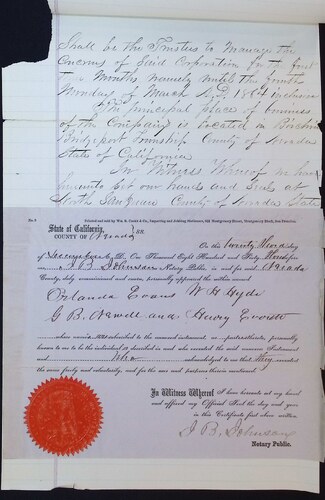 Shall be the Trustees to Manage the
Concerns of Said Corporation for the first
Months namely until the fourth
Monday of March AD 1864 inclusive
The principal place of business
of the Company is Located in
Bridgeport Township County of Nevada
State of California
In Witness Whereof we have
hereunto Set our hands and Seals at
North San Juan County of Nevada State
State of California, } SS.
COUNTY OF Nevada
On this twenty third day
of A.D. One Thousand Eight Hundred and Sixty Three before
me, J B Johnson Notary Public in and for said Nevada
County, duly commissioned and sworn, personally appeared the within named
Orlando Evans W H Hyde
G B Newell and Henry Everett
whose names are subscribed to the annexed instrument as parties thereto, personally
known to me to be the individuals described in and who executed the said annexed Instrument
and who acknowledged to me that they executed
the same freely and voluntarily, and for the uses and purposes therein mentioned.
In Witness Whereof I have hereunto set my hand
and affixed my Official Seal the day and year
in this Certificate first above written.
J B Johnson
Notary Public.